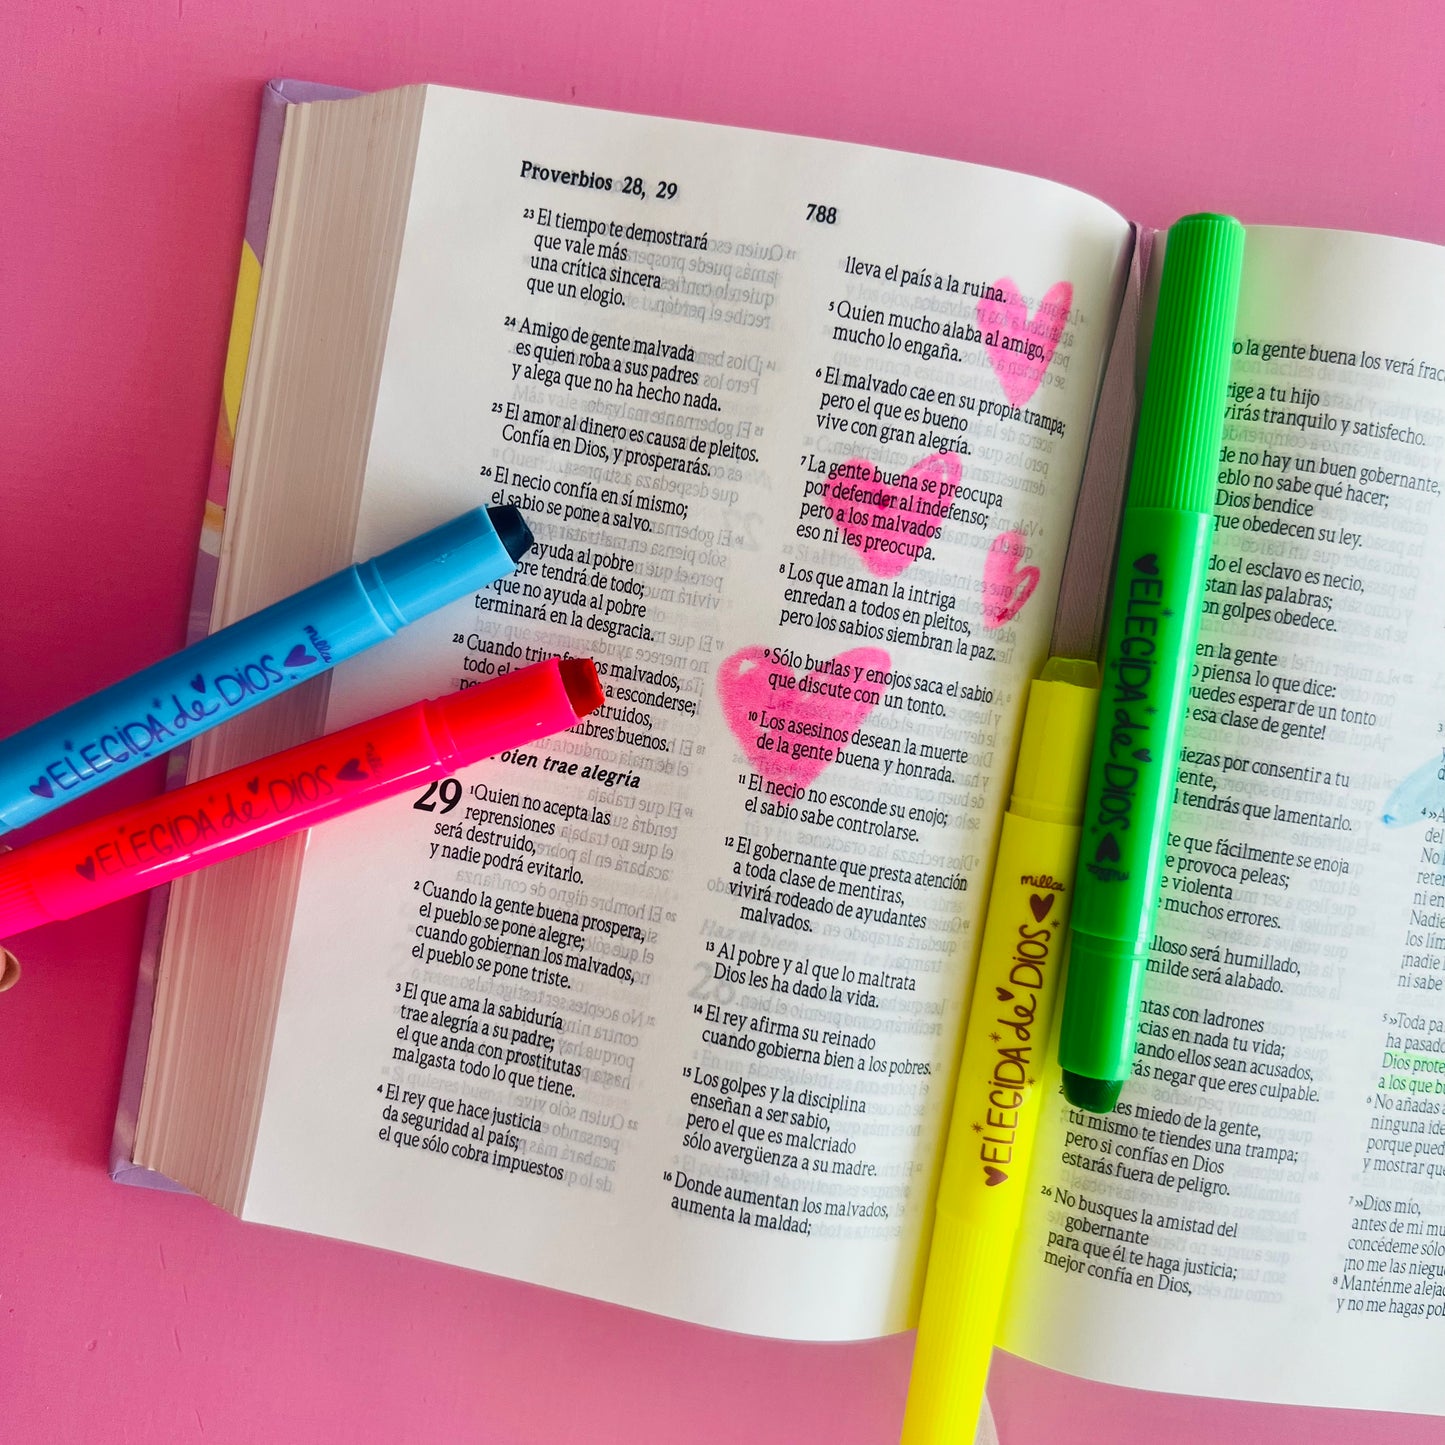 Proverbios 28, 29
788
23 El tiempo te demostrará
que vale más
una crítica sincera
que un elogio.
24 Amigo de gente malvada
es quien roba a sus padres
y alega que no ha hecho nada.
25 El amor al dinero es causa de pleitos.
Confía en Dios, y prosperarás.
26 El necio confía en sí mismo;
el sabio se pone a salvo.
ayuda al pobre
tendrá de todo;
que no ayuda al pobre
terminará en la desgracia.
28 Cuando los malvados,
todo el esconderse;
buenos.
trae alegría
29
1 Quien no acepta las
reprensiones
será destruido,
y nadie podrá evitarlo.
2 Cuando la gente buena prospera,
el pueblo se pone alegre;
cuando gobiernan los malvados,
el pueblo se pone triste.
3 El que ama la sabiduría
trae alegría a su padre;
el que anda con prostitutas
malgasta todo lo que tiene.
4 El rey que hace justicia
da seguridad al país;
el que sólo cobra impuestos
lleva el país a la ruina.
5 Quien mucho alaba al amigo,
mucho lo engaña.
6 El malvado cae en su propia trampa;
pero el que es bueno
vive con gran alegría.
7 La gente buena se preocupa
por defender al indefenso;
pero a los malvados
eso ni les preocupa.
8 Los que aman la intriga
enredan a todos en pleitos,
pero los sabios siembran la paz.
9 Sólo burlas y enojos saca el sabio
que discute con un tonto.
10 Los asesinos desean la muerte
de la gente buena y honrada.
11 El necio no esconde su enojo;
el sabio sabe controlarse.
12 El gobernante que presta atención
a toda clase de mentiras,
vivirá rodeado de ayudantes
malvados.
13 Al pobre y al que lo maltrata
Dios les ha dado la vida.
14 El rey afirma su reinado
cuando gobierna bien a los pobres.
15 Los golpes y la disciplina
enseñan a ser sabio,
pero el que es malcriado
sólo avergüenza a su madre.
16 Donde aumentan los malvados,
aumenta la maldad;
la gente buena los verá
a tu hijo
tranquilo y satisfecho.
no hay un buen gobernante,
no sabe qué hacer;
Dios bendice
que obedecen su ley.
el esclavo es necio,
las palabras;
golpes obedece.
en la gente
piensa lo que dice:
esperar de un tonto
esa clase de gente!
por consentir a tu
tendrás que lamentarlo.
que fácilmente se enoja
provoca peleas;
violenta
muchos errores.
será humillado,
será alabado.
con ladrones
en nada tu vida;
ellos sean acusados,
negar que eres culpable.
miedo de la gente,
tú mismo te tiendes una trampa;
pero si confías en Dios
estarás fuera de peligro.
26 No busques la amistad del
gobernante
para que él te haga justicia;
mejor confía en Dios,
No
ni en
Nadie
ni sabe
5 »Toda
ha
Dios
a los que
6 No añadas
ninguna
porque
y mostrar que
7 »Dios mío,
antes de mi
concédeme sólo
¡no me las
8 Manténme
y no me hagas
ELEGIDA de DIOS
millca
ELEGIDA de DIOS
ELEGIDA de DIOS
millca
ELEGIDA de DIOS
millca